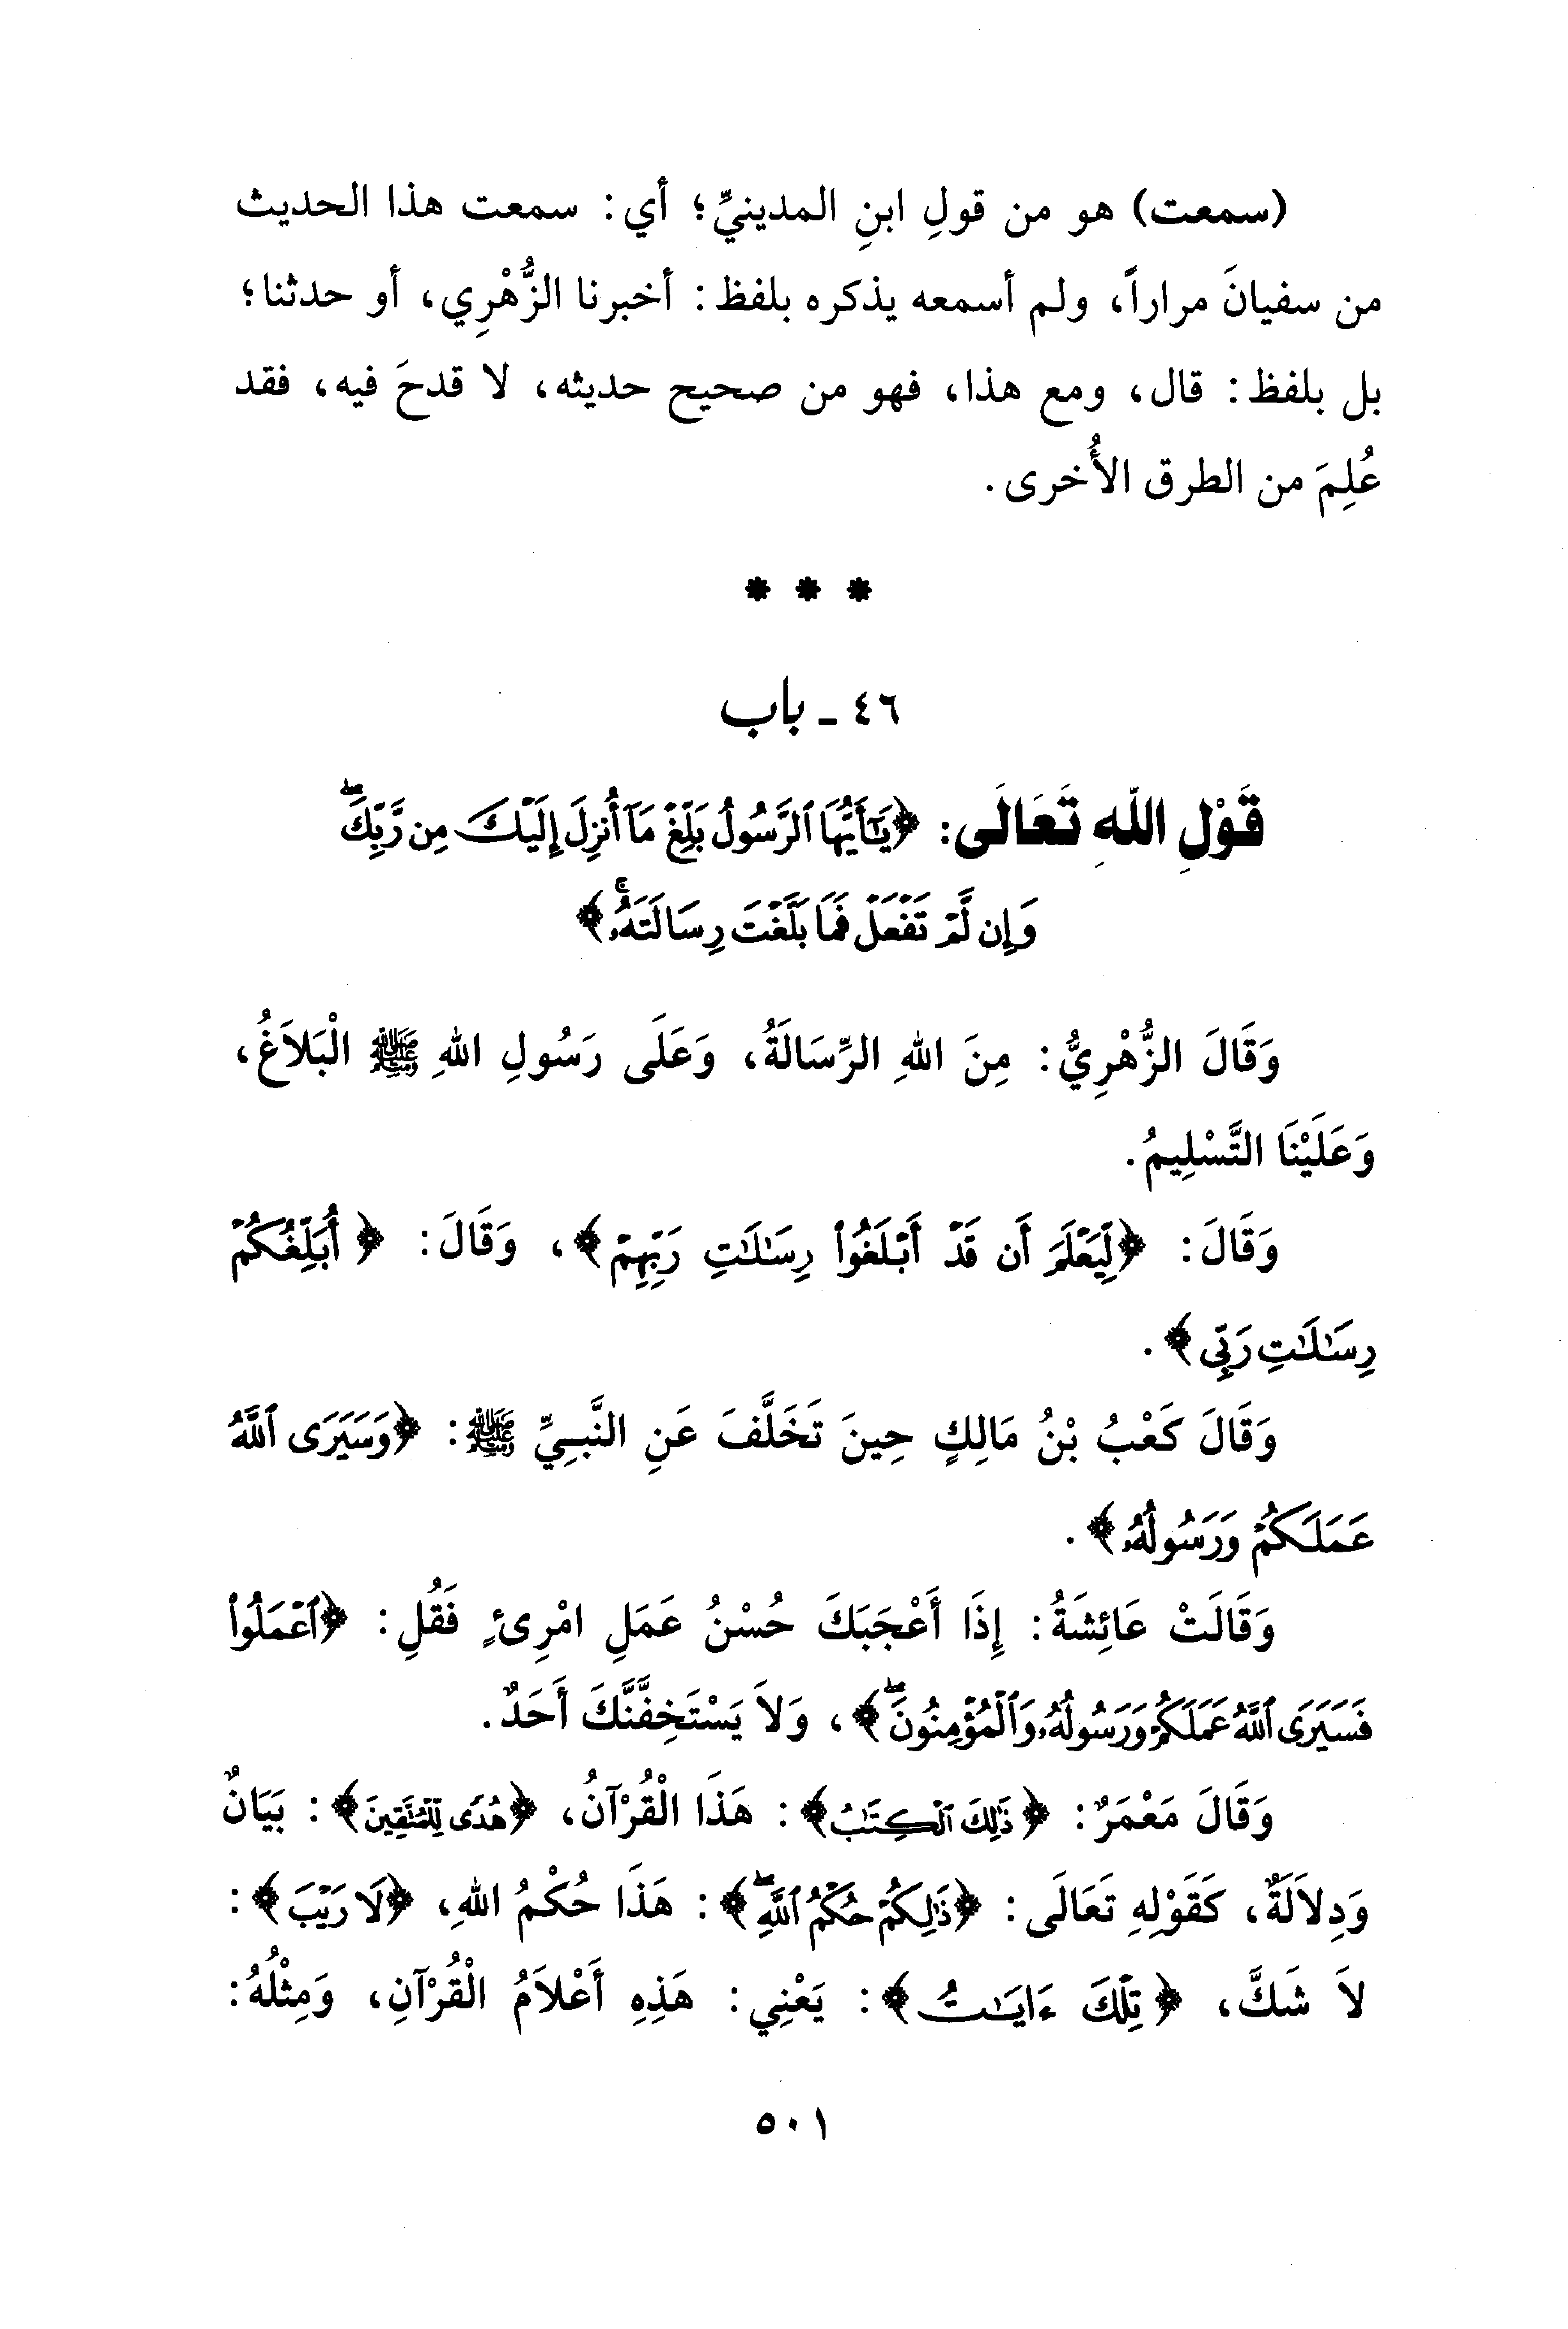 (سمعت) هو من قولِ ابنِ المدينيِّ؛ أي: سمعت هذا الحديث
من سفيانَ مراراً، ولم أسمعه يذكره بلفظ: أخبرنا الزُّهْرِي، أو حدثنا؛
بل بلفظ: قال، ومع هذا، فهو من صحيح حديثه، لا قدحَ فيه، فقد
عُلِمَ من الطرق الأُخرى.
* * *
٤٦ - باب
قَوْلِ اللهِ تَعَالَى: ﴿يَٰٓأَيُّهَا ٱلرَّسُولُ بَلِّغۡ مَآ أُنزِلَ إِلَيۡكَ مِن رَّبِّكَۖ
وَإِن لَّمۡ تَفۡعَلۡ فَمَا بَلَّغۡتَ رِسَالَتَهُۥۚ﴾
وَقَالَ الزُّهْرِيُّ: مِنَ اللهِ الرِّسَالَةُ، وَعَلَى رَسُولِ اللهِ ﷺ الْبَلاَغُ،
وَعَلَيْنَا التَّسْلِيمُ.
وَقَالَ: ﴿لِّيَعۡلَمَ أَن قَدۡ أَبۡلَغُواْ رِسَٰلَٰتِ رَبِّهِمۡ﴾، وَقَالَ: ﴿أُبَلِّغُكُمۡ
رِسَٰلَٰتِ رَبِّي﴾.
وَقَالَ كَعْبُ بْنُ مَالِكٍ حِينَ تَخَلَّفَ عَنِ النَّبِيِّ ﷺ: ﴿وَسَيَرَى ٱللَّهُ
عَمَلَكُمۡ وَرَسُولُهُۥ﴾.
وَقَالَتْ عَائِشَةُ: إِذَا أَعْجَبَكَ حُسْنُ عَمَلِ امْرِئٍ فَقُلِ: ﴿ٱعۡمَلُواْ
فَسَيَرَى ٱللَّهُ عَمَلَكُمۡ وَرَسُولُهُۥ وَٱلۡمُؤۡمِنُونَۖ﴾، وَلاَ يَسْتَخِفَّنَّكَ أَحَدٌ.
وَقَالَ مَعْمَرٌ: ﴿ذَٰلِكَ ٱلۡكِتَٰبُ﴾: هَذَا الْقُرْآنُ، ﴿هُدٗى لِّلۡمُتَّقِينَ﴾: بَيَانٌ
وَدِلاَلَةٌ، كَقَوْلِهِ تَعَالَى: ﴿ذَٰلِكُمۡ حُكۡمُ ٱللَّهِۖ﴾: هَذَا حُكْمُ اللهِ، ﴿لَا رَيۡبَ﴾:
لاَ شَكَّ، ﴿تِلۡكَ ءَايَٰتُ﴾: يَعْنِي: هَذِهِ أَعْلاَمُ الْقُرْآنِ، وَمِثْلُهُ:
٥٠١